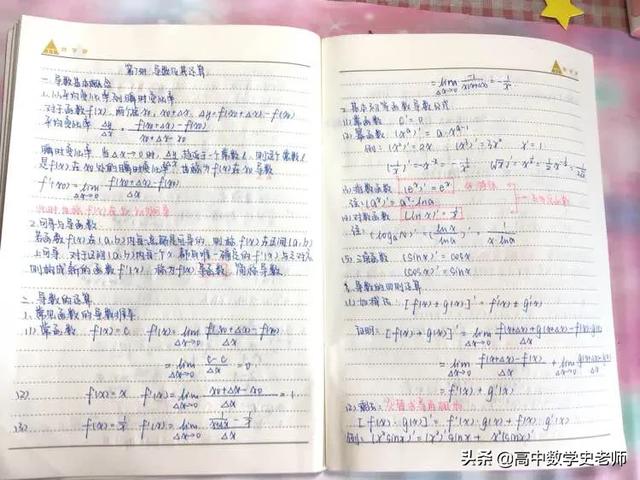 第7讲 导数及其运算
一、导数基本概念
1、从平均变化率到瞬时变化率
对于函数f(x), 两个值x₀, x₀+Δx, Δy=f(x₀+Δx)-f(x₀)
平均变化率 Δy/Δx = f(x₀+Δx)-f(x₀) / x₀+Δx-x₀
瞬时变化率: 当Δx→0时, Δy/Δx 趋近于一个常数l, 则这个常数l
是f(x)在x₀处的瞬时变化率, 也称为f(x)在x₀导数
f'(x₀)= lim Δx→0 f(x₀+Δx)-f(x₀) / Δx
此时也称f(x)在x₀处可导
2、可导与导函数
若函数f(x)在(a,b)内每一点都是可导的, 则称f(x)在区间(a,b)
上可导. 对于区间(a,b)内每一个x, 都有唯一确定的f'(x)与之对应
则构成新的函数f'(x), 称为f(x)导函数, 简称导数.
二、导数的运算
1、常见函数的导数推导
(1) 常函数 f(x)=C f'(x)= lim Δx→0 f(x₀+Δx)-f(x₀) / Δx
= lim Δx→0 C-C / Δx = 0
(2) f(x)=x f'(x)= lim Δx→0 x₀+Δx-x₀ / Δx = 1
(3) f(x)=1/x f'(x)= lim Δx→0
= lim Δx→0 = -1/x²
2、基本初等函数导数公式
(1) 常函数 C'=0
(2) 幂函数 (xᵅ)'=α·xᵅ⁻¹
例: (x²)'=2x (x³)'=3x² x'=1
(1/x)'=-x⁻²=-1/x² (√x)'=1/2 x^(-1/2)=1/2√x
(3) 指数函数 (eˣ)'=eˣ
注: (aˣ)'=aˣ·lna
(4) 对数函数 (lnx)'=1/x
注: (logₐx)'=(lnx/lna)'=1/x·lna
(5) 三角函数 (sinx)'=cosx
(cosx)'=-sinx
3、导数的四则运算
(1) 加法: [f(x)+g(x)]'=f'(x)+g'(x)
证明: [f(x)+g(x)]'= lim Δx→0 f(x+Δx)+g(x+Δx)-f(x)-g(x) / Δx
= lim Δx→0 f(x+Δx)-f(x) / Δx + lim Δx→0 g(x+Δx)-g(x) / Δx
= f'(x)+g'(x)
(2) 乘法:
[f(x)·g(x)]'=f'(x)·g(x)+f(x)·g'(x)
例: (x²sinx)'=(x²)'sinx+x²(sinx)'
头条 @高中数学史老师